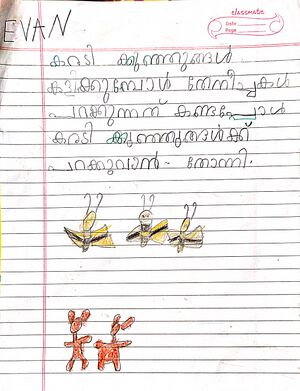 classmate
Date
Page
EVAN
കരടി കുഞ്ഞുങ്ങൾ
കളിക്കുമ്പോൾ തേനീച്ചകൾ
പറക്കുന്നത് കണ്ടപ്പോൾ
കരടി കുഞ്ഞുങ്ങൾക്ക്
പറക്കുവാൻ - തോന്നി.